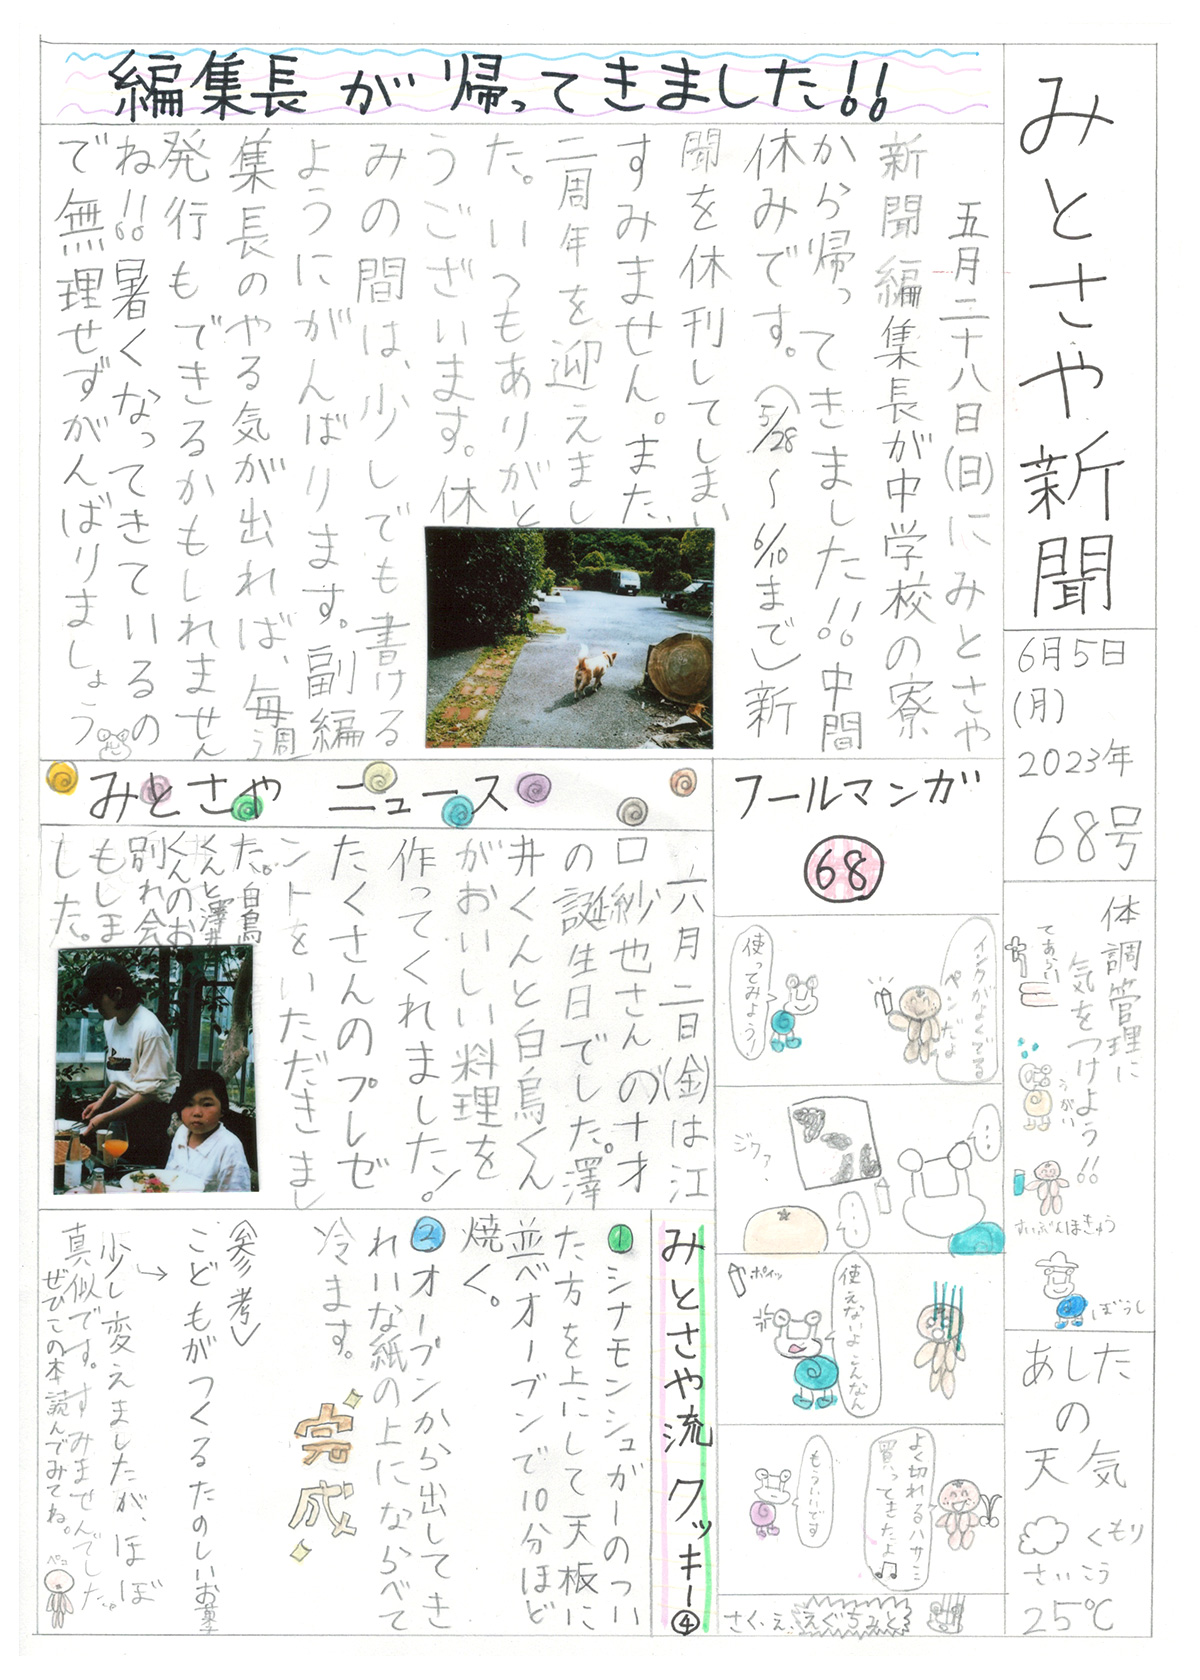 みとさや新聞
6月5日
(月)
2023年
68号
編集長が帰ってきました!!
五月二十八日(日)にみとさや
新聞編集長が中学校の寮
から帰ってきました!!中間
休みです。(5/28〜6/10まで)新
聞を休刊してしまい
すみません。また、
二周年を迎えまし
た。いつもありがと
うございます。休
みの間は、少しでも書ける
ようにがんばります。副編
集長のやる気が出れば、毎週
発行もできるかもしれません
ね!!暑くなってきているの
で無理せずがんばりましょう
みとさや ニュース
六月二日(金)は江
口紗也さんの十才
の誕生日でした。澤
井くんと白鳥くん
がおいしい料理を
作ってくれました。
たくさんのプレゼ
ントをいただきまし
た。白鳥
くんと澤井
くんのお
別れ会
もしま
した。
フールマンガ
68
インクがよくでる
ペンだよ
使ってみよう!
・・・
ジワァ
・・・
使えないよこんなん
ポイッ
よく切れるハサミ
買ってきたよ♫
もういいです
さく・え、えぐちみと
体調管理に
気をつけよう!!
てあらい
うがい
すいぶんほきゅう
ぼうし
あした
の
天気
くもり
さいこう
25℃
みとさや流 クッキー④
①シナモンシュガーのつい
た方を上にして天板に
並べオーブンで10分ほど
焼く。
②オーブンから出してき
れいな紙の上にならべて
冷ます。
完成
(参考)
こどもがつくるたのしいお菓子
→少し変えましたが、ほぼ
真似です。すみませんでした。
ぜひこの本読んでみてね。
ペコ